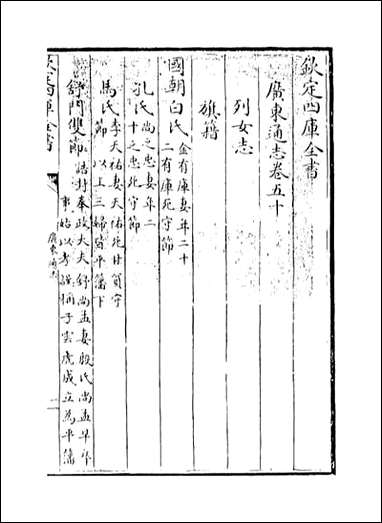 欽定四庫全書
廣東通志卷五十
列女志
旗籍
國朝白氏金有庫妻年二十
二有庫死守節
孔氏尚之忠妻年二
十之忠死守節
馬氏李天祐妻天祐死甘貧守
節以上三婦皆平藩下
舒門雙節誥封奉政大夫舒尚孟妻殷氏尚孟早卒
事姑以孝撫子雲虎成立為平藩
欽定四庫全書
廣東通志
一